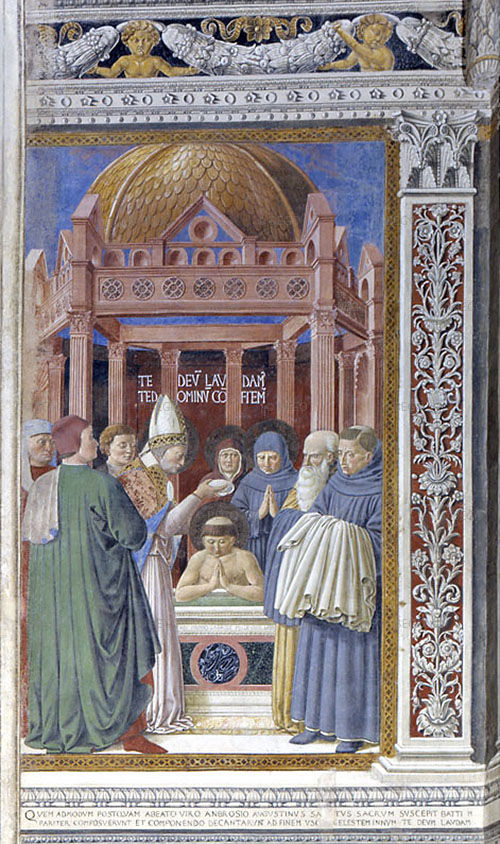 TE DEV̄ LAV DAM̄
TED OMINV̄ CO FITEM̄
QVEM ADMODVM POSTQVAM ABEATO VIRO ANBROSIO AVGVSTINVS SA TVS SACRUM SVSCEPIT BATTI M
PARITER COMPOSVERVNT ET COMPONENDO DECANTARVNT AD FINEM VSQ ELESTEM INNVM TE DEVM LAVDAM